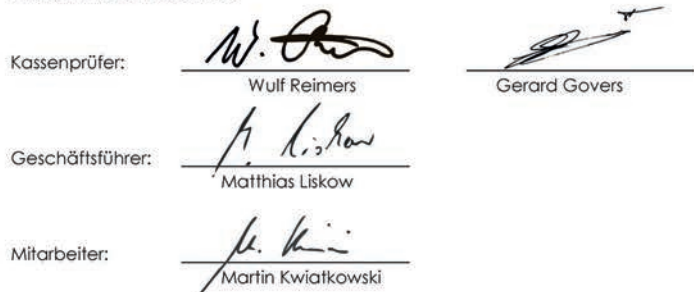 Kassenprüfer:
Wulf Reimers
Gerard Govers
Geschäftsführer:
M. Liskow
Matthias Liskow
Mitarbeiter:
Martin Kwiatkowski